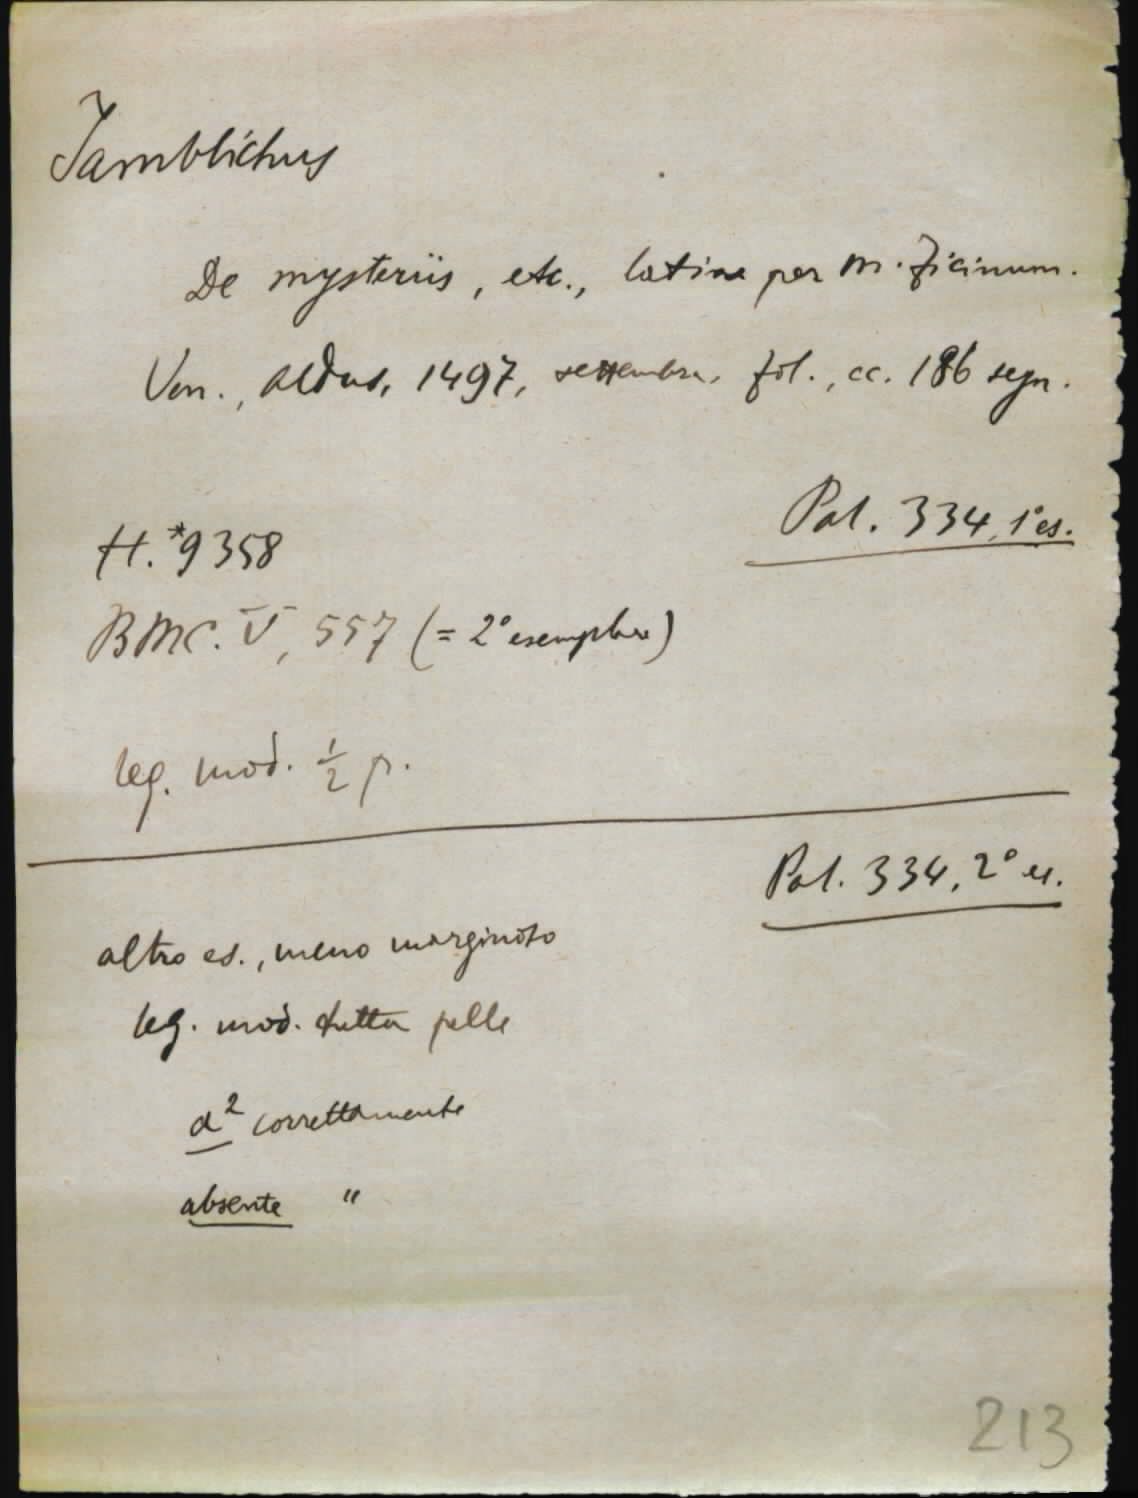 Jamblichus
De mysteriis, etc., latine per M. Ficinum.
Ven., Aldus, 1497, settembre, fol., cc. 186 segn.
Pal. 334, 1° es.
H. *9358
BMC. V, 557 (= 2° esemplare)
leg. mod. ½ p.
Pal. 334, 2° es.
altro es., meno marginoso
leg. mod. tutta pelle
a² correttamente
absente "
213